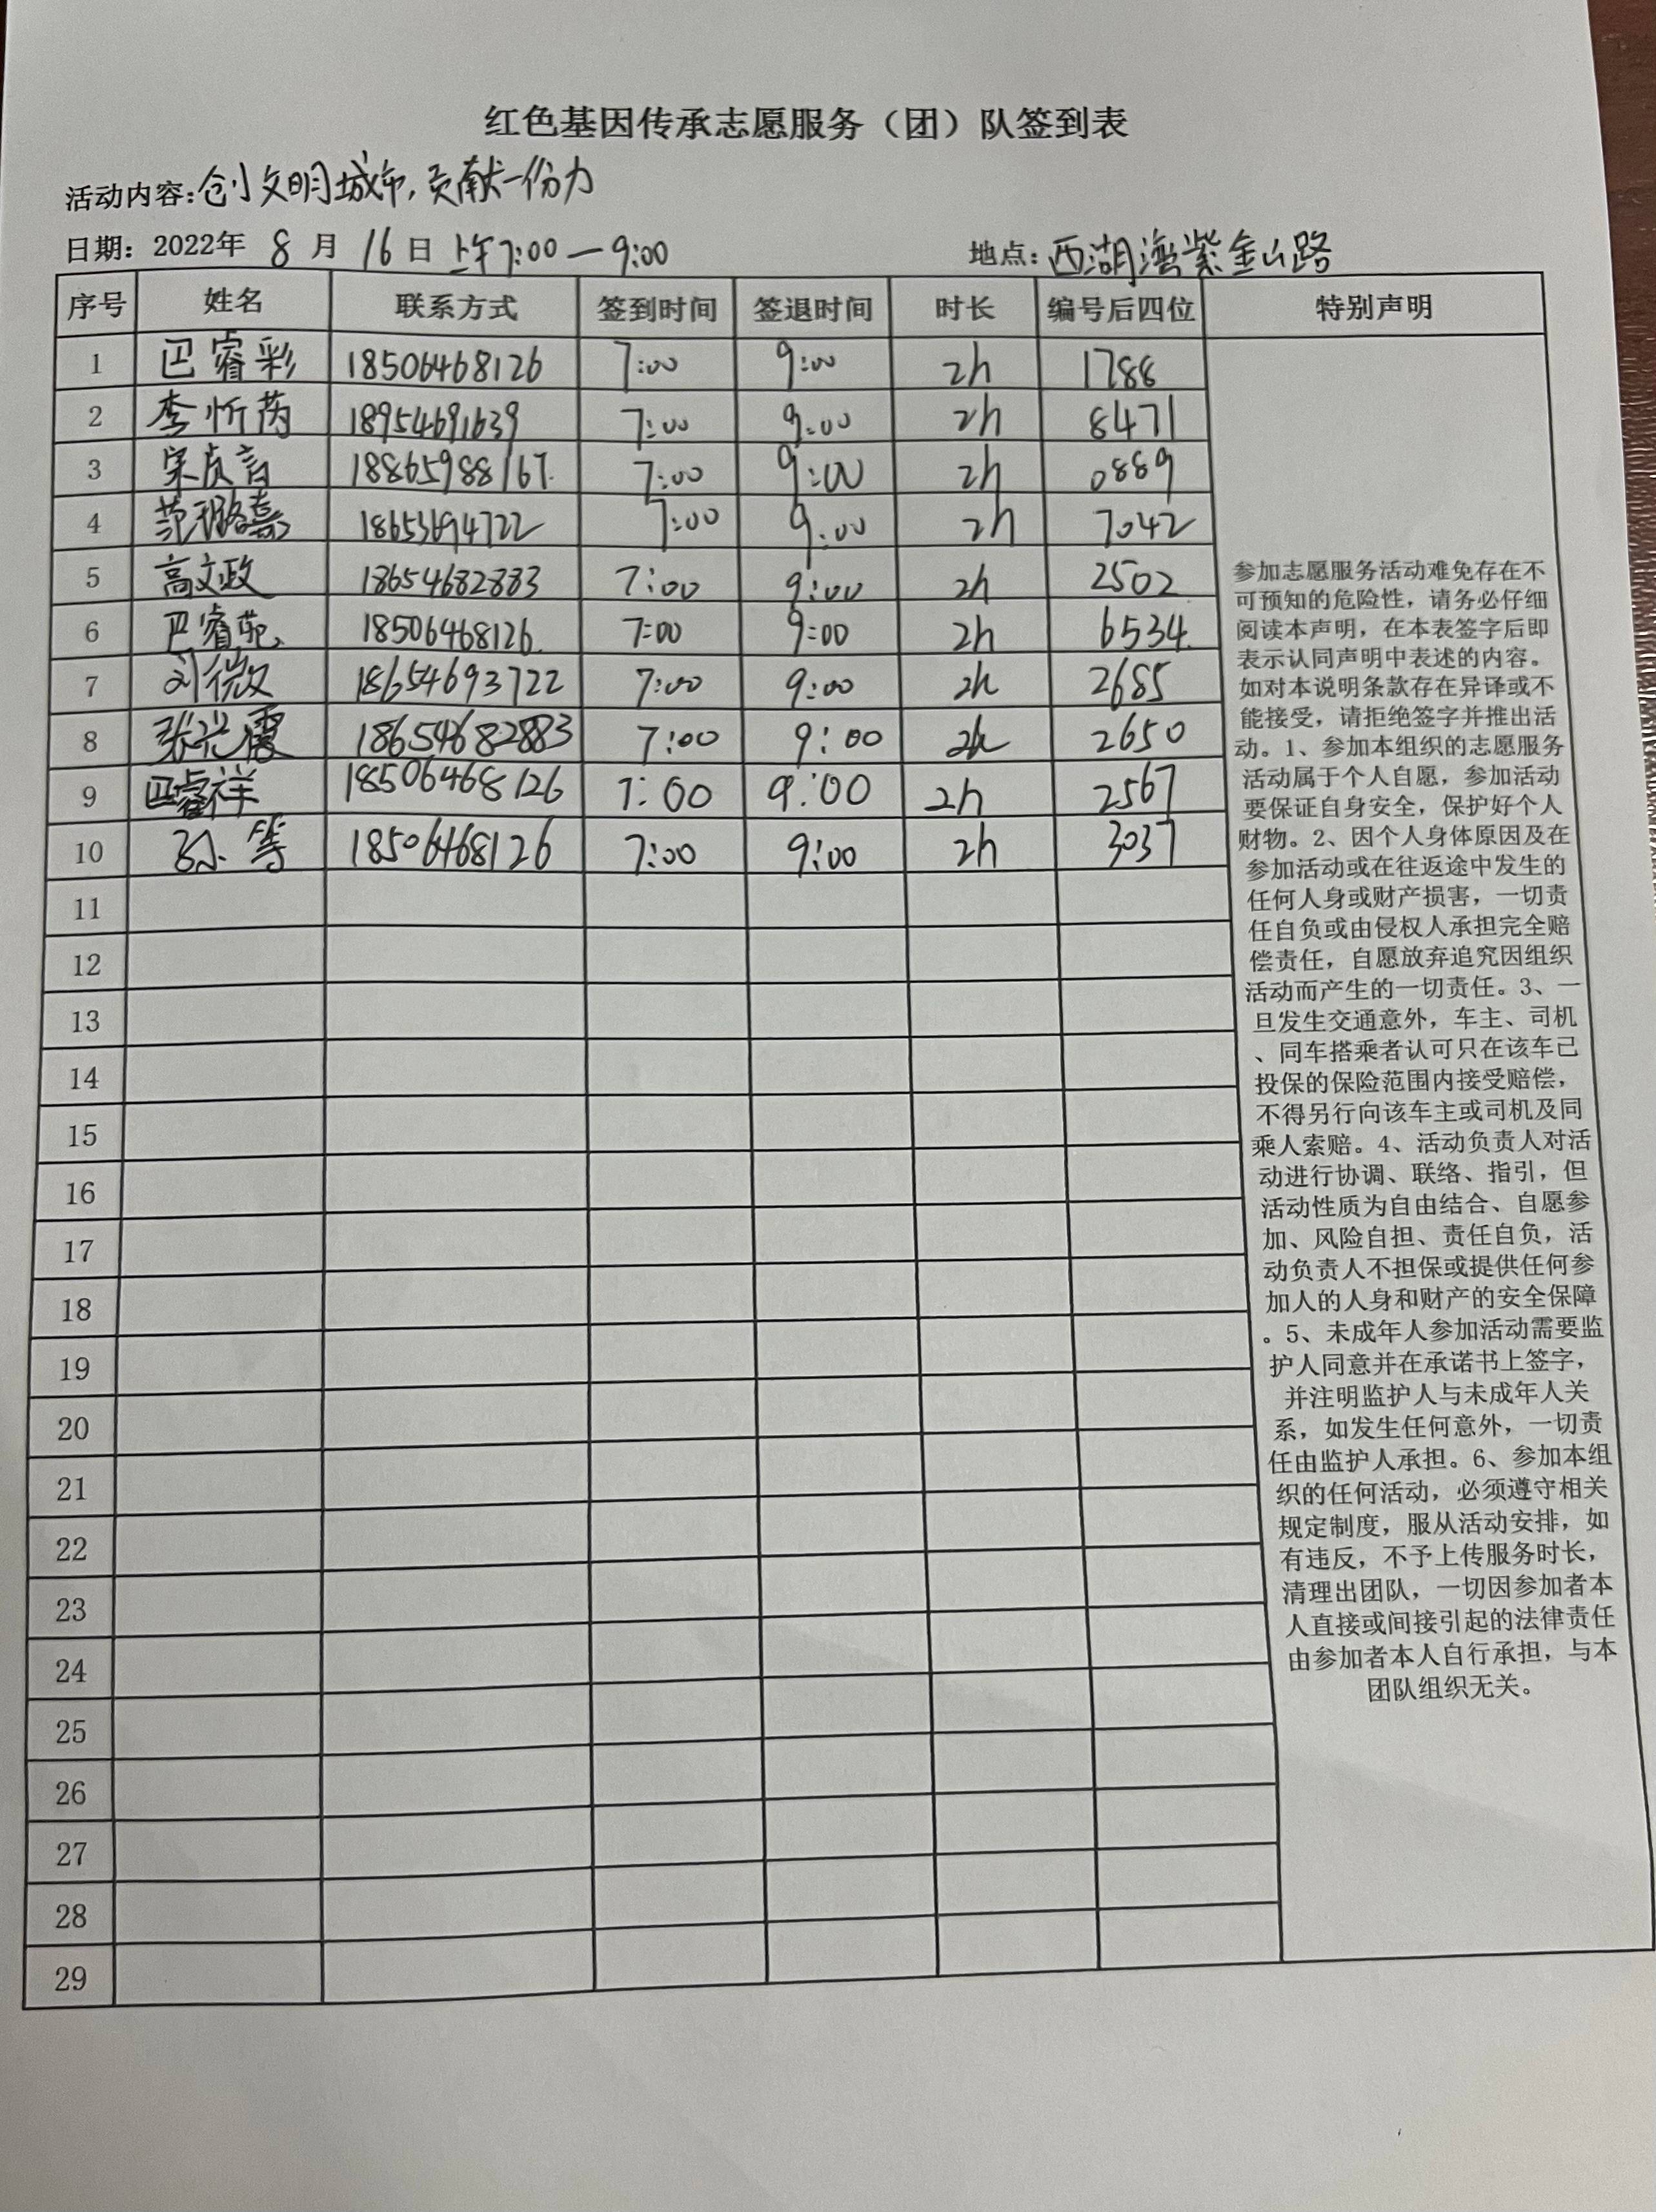 红色基因传承志愿服务（团）队签到表
活动内容：创文明城市，贡献一份力
日期：2022年 8 月 16 日 上午7:00—9:00 地点：西湖湾紫金山路
序号 姓名 联系方式 签到时间 签退时间 时长 编号后四位 特别声明
1 巴睿彩 18506468126 7:00 9:00 2h 1788
2 李忻芮 18954691639 7:00 9:00 2h 8471
3 宋贞言 18865988167. 7:00 9:00 2h 0889
4 范璐嘉 7:00 9:00 2h 7042
5 高文政 18654682883 7:00 9:00 2h 2502
6 巴睿苑 18506468126. 7:00 9:00 2h 6534.
7 刘微 18654693722 7:00 9:00 2h 2685
8 张 霞 18654682883 7:00 9:00 2h 2650
9 巴睿祥 18506468126 7:00 9:00 2h 2567
10 孙 等 18506468126 7:00 9:00 2h 3037
11
12
13
14
15
16
17
18
19
20
21
22
23
24
25
26
27
28
29
参加志愿服务活动难免存在不
可预知的危险性，请务必仔细
阅读本声明，在本表签字后即
表示认同声明中表述的内容。
如对本说明条款存在异译或不
能接受，请拒绝签字并推出活
动。1、参加本组织的志愿服务
活动属于个人自愿，参加活动
要保证自身安全，保护好个人
财物。2、因个人身体原因及在
参加活动或在往返途中发生的
任何人身或财产损害，一切责
任自负或由侵权人承担完全赔
偿责任，自愿放弃追究因组织
活动而产生的一切责任。3、一
旦发生交通意外，车主、司机
、同车搭乘者认可只在该车已
投保的保险范围内接受赔偿，
不得另行向该车主或司机及同
乘人索赔。4、活动负责人对活
动进行协调、联络、指引，但
活动性质为自由结合、自愿参
加、风险自担、责任自负，活
动负责人不担保或提供任何参
加人的人身和财产的安全保障
。5、未成年人参加活动需要监
护人同意并在承诺书上签字，
并注明监护人与未成年人关
系，如发生任何意外，一切责
任由监护人承担。6、参加本组
织的任何活动，必须遵守相关
规定制度，服从活动安排，如
有违反，不予上传服务时长，
清理出团队，一切因参加者本
人直接或间接引起的法律责任
由参加者本人自行承担，与本
团队组织无关。